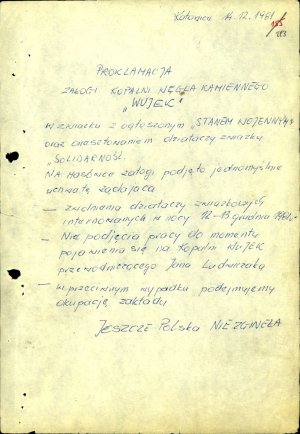 Katowice 14.12.1981
193
PROKLAMACJA
ZAŁOGI KOPALNI WĘGLA KAMIENNEGO
"WUJEK"
W związku z ogłoszonym "STANEM WOJENNYM"
oraz aresztowaniem działaczy związku
"SOLIDARNOŚĆ.
NA MASÓWCE załogi podjęto jednomyślnie
uchwałę żądającą
— zwolnienia działaczy związkowych
internowanych w nocy 12-13 grudnia 1981r.
— Nie podjęcia pracy do momentu
pojawienia się na kopalni WUJEK
przewodniczącego Jana Ludwiczaka
— w przeciwnym wypadku podejmujemy
okupację zakładu
JESZCZE POLSKA NIE ZGINĘŁA